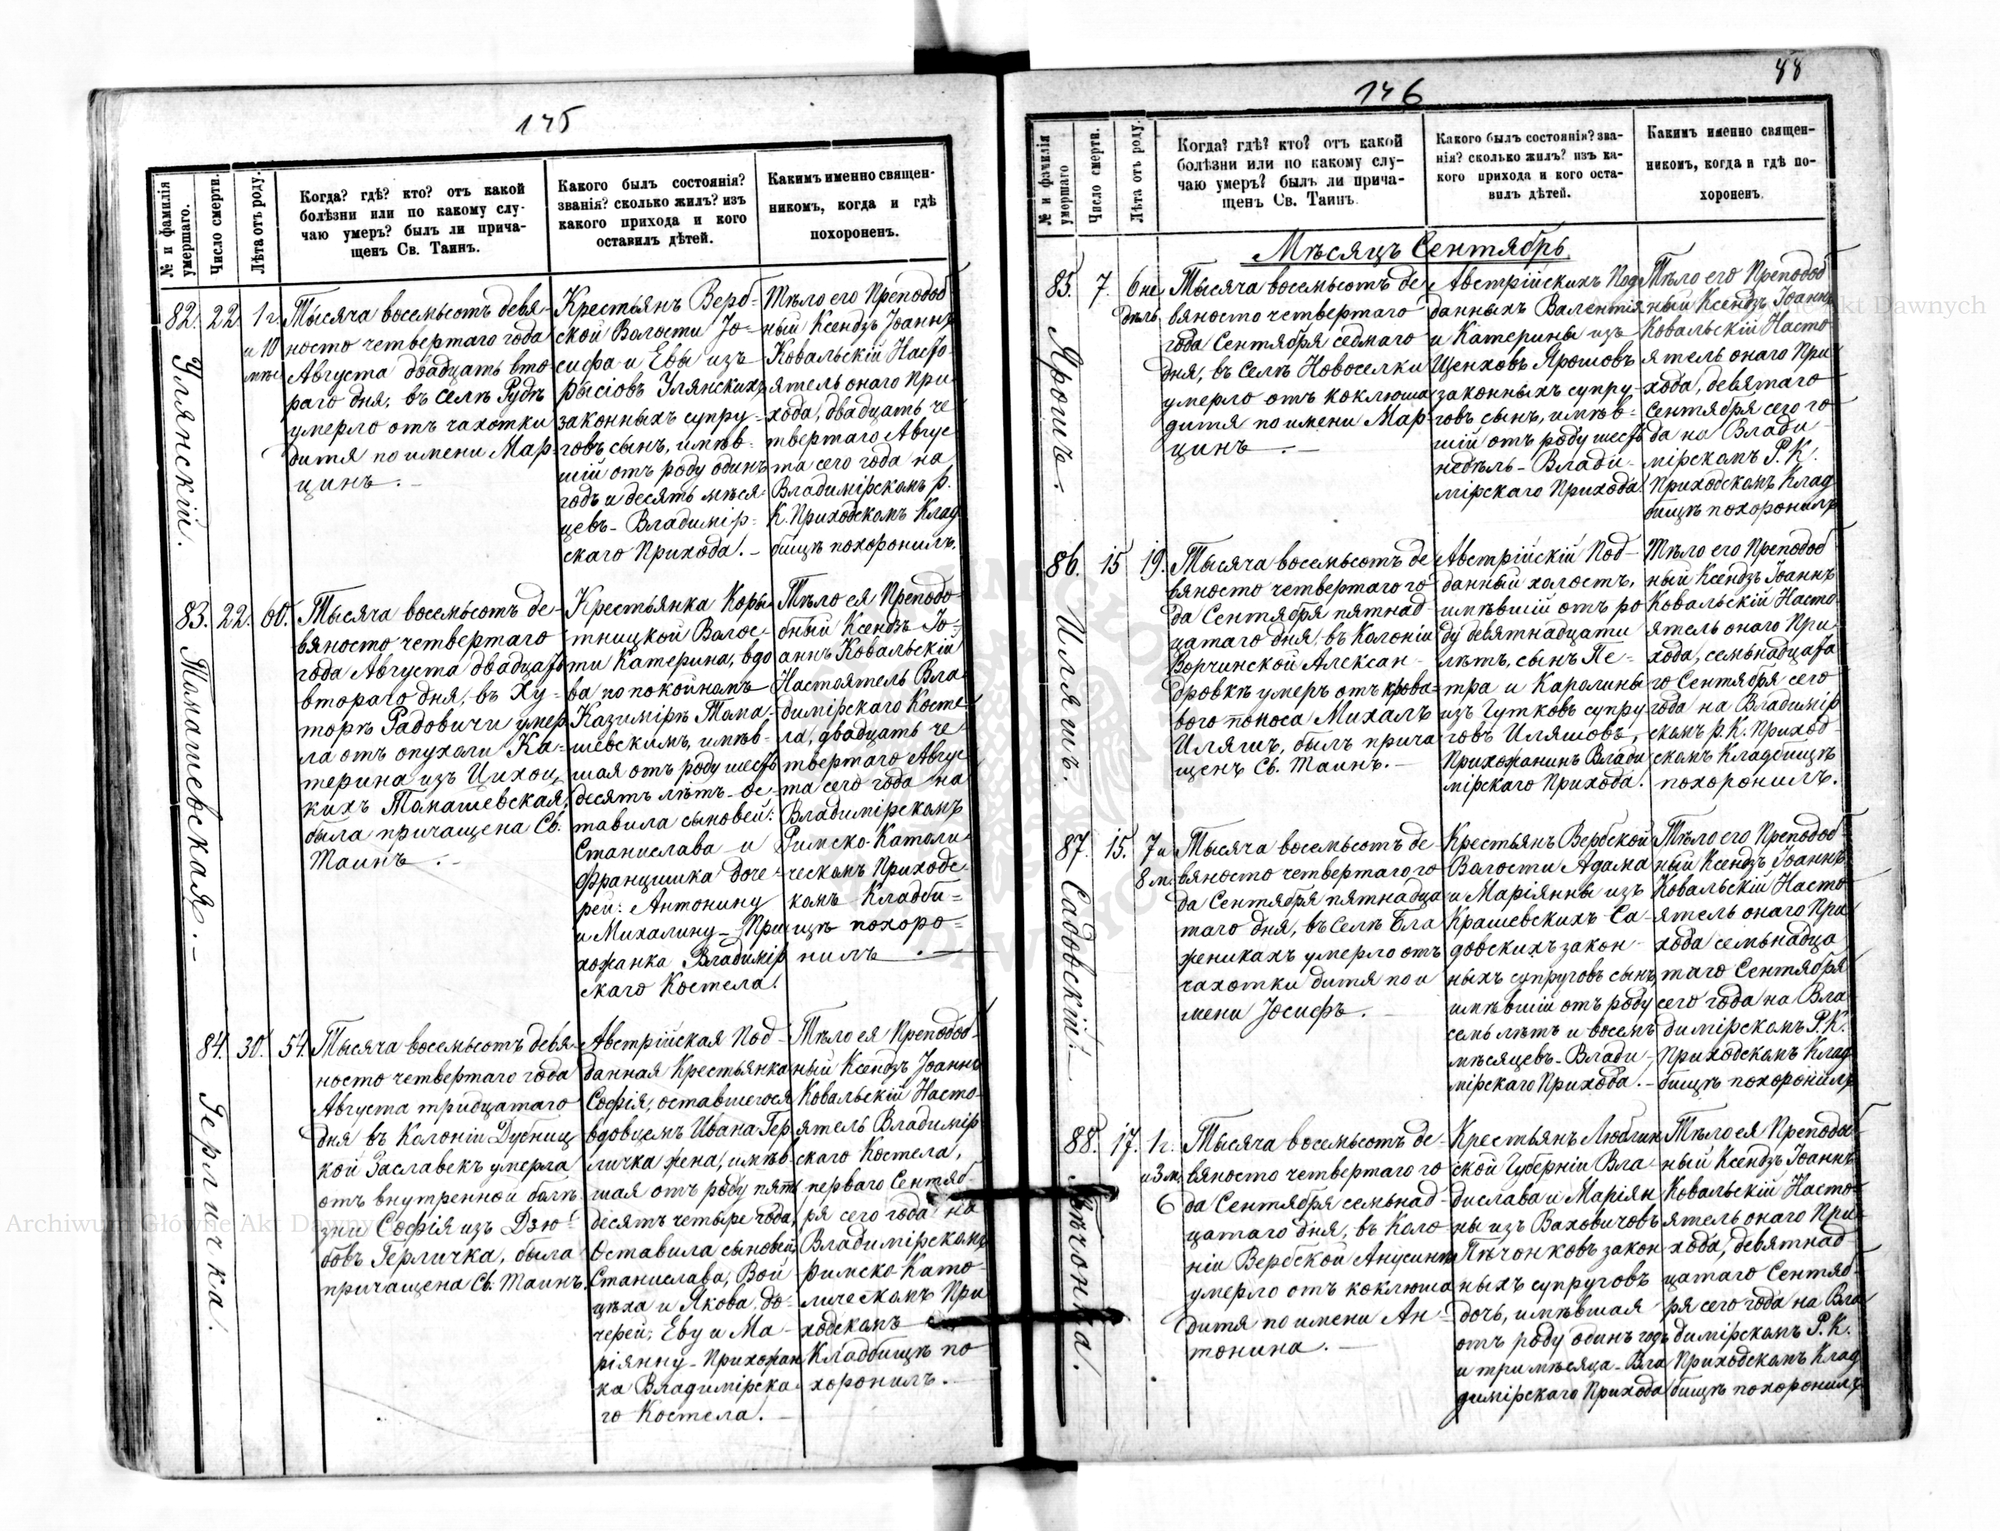 145
№ и фамилія умершаго.
Число смерти.
Лѣта отъ роду.
Когда? гдѣ? кто? отъ какой
болѣзни или по какому слу-
чаю умеръ? былъ ли прича-
щенъ Св. Таинъ.
Какого былъ состоянія?
званія? сколько жилъ? изъ
какого прихода и кого
оставилъ дѣтей.
Какимъ именно священ-
никомъ, когда и гдѣ
похороненъ.
82.
Улянскій.
22
1 г.
и 10
мѣс
Тысяча восемьсотъ девя-
носто четвертаго года
Августа двадцать вто
раго дня, въ селѣ Рудѣ
умерло отъ чахотки
дитя по имени Мар-
цинъ. –
Крестьянъ Верб-
ской Волости Іо-
сифа и Евы изъ
Рысіовъ Улянскихъ
законныхъ супру-
говъ сынъ, имѣв-
шій отъ роду одинъ
годъ и десять мѣся-
цевъ – Владимір-
скаго Прихода. –
Тѣло его Преподоб
ный Ксендзъ Іоаннъ
Ковальскій Насто-
ятель онаго При
хода, двадцать че
твертаго Авгус-
та сего года на
Владимірскомъ Р.
К. Приходскомъ Клад
бищѣ похоронилъ.
83.
Томашевская. –
22.
60.
Тысяча восемьсотъ де-
вяносто четвертаго
года Августа двадцать
втораго дня, въ Ху-
торѣ Радовичи умер
ла отъ опухоли Ка-
терина изъ Цихоц
кихъ Томашевская,
была причащена Св.
Таинъ. –
Крестьянка Коры-
тницкой Волос-
ти Катерина, вдо
ва по покойномъ
Казимірѣ Тома-
шевскимъ, имѣв-
шая отъ роду шесть
десятъ лѣтъ – ос-
тавила сыновей:
Станислава и
Францишка доче-
рей: Антонину
и Михалину – При
хожанка Владимір
скаго Костела.
Тѣло ея Преподо-
бный Ксендзъ Іо-
аннъ Ковальскій
Настоятель Вла-
димірскаго Косте-
ла, двадцать че
твертаго Авгус-
та сего года на
Владимірскомъ
Римско-Католи-
ческомъ Приходс-
комъ Кладби-
щѣ похоро-
нилъ. –
84.
Герличка.
30.
54.
Тысяча восемьсотъ девя-
носто четвертаго года
Августа тридцатаго
дня въ Колоніи Дубниц
кой Заславекъ умерла
отъ внутренной болѣ-
зни Софія изъ Дзю-
бовъ Герличка, была
причащена Св. Таинъ.
Австрійская Под-
данная Крестьянка
Софія, оставшегося
вдовцемъ Ивана Гер
личка жена, имѣв-
шая отъ роду пять
десятъ четыре года,
Оставила сыновей,
Станислава, Вой
цѣха и Якова. до-
черей, Еву и Ма-
ріянну – Прихожан
ка Владимірска-
го Костела. –
Тѣло ея Преподоб-
ный Ксендзъ Іоаннъ
Ковальскій Насто-
ятель Владимір-
скаго Костела,
перваго Сентяб-
ря сего года на
Владимірскомъ
Римско Като-
лическомъ При
ходскомъ
Кладбищѣ по-
хоронилъ. –
146
88
№ и фамилія умершаго
Число смерти.
Лѣта отъ роду.
Когда? гдѣ? кто? отъ какой
болѣзни или по какому слу-
чаю умеръ? былъ ли прича-
щенъ Св. Таинъ.
Какого былъ состоянія? зва-
нія? сколько жилъ? изъ ка-
кого прихода и кого оста-
вилъ дѣтей.
Какимъ именно священ-
никомъ, когда и гдѣ по-
хороненъ.
Мѣсяцъ Сентябрь.
85.
Ярошъ.
7.
6 не
дѣль
Тысяча восемьсотъ де
вяносто четвертаго
года Сентября седмаго
дня, въ селѣ Новоселки
умерло отъ коклюша
дитя по имени Мар
цинъ. –
Австрійскихъ Под
данныхъ Валентія
и Катерины изъ
Щенховъ Ярошовъ
законныхъ супру-
говъ сынъ, имѣв-
шій отъ роду шесть
недѣль – Влади-
мірскаго Прихода.
Тѣло его Преподоб
ный Ксендзъ Іоаннъ
Ковальскій Насто
ятель онаго При
хода, девятаго
Сентября сего го
да на Влади-
мірскомъ Р. К.
Приходскомъ Клад
бищѣ похоронилъ
86.
Иляшъ.
15
19.
Тысяча восемьсотъ де
вяносто четвертаго го
да Сентября пятнад
цатаго дня, въ Колоніи
Ворчинской Алексан-
дровкѣ умеръ отъ крова-
ваго поноса Михалъ
Иляшъ, былъ прича
щенъ Св. Таинъ. –
Австрійскій Под-
данный холостъ,
имѣвшій отъ ро
ду девятнадцати
лѣтъ, сынъ Пе-
тра и Каролины
изъ Гутковъ супру
говъ Иляшовъ,
Прихожанинъ Влади
мірскаго Прихода.
Тѣло его Преподоб
ный Ксендзъ Іоаннъ
Ковальскій Насто
ятель онаго При
хода, семьнадцата
го Сентября сего
года на Владимір
скомъ Р. К. Приход-
скомъ Кладбищѣ
похоронилъ.
87.
Садовскій.
15.
7 и
8 м.
Тысяча восемьсотъ де-
вяносто четвертаго го
да Сентября пятнадца
таго дня, въ селѣ Бла
женикахъ умерло отъ
чахотки дитя по и
мени Іосифъ. –
Крестьянъ Вербской
Волости Адама
и Маріянны изъ
Крашевскихъ Са-
довскихъ закон-
ныхъ супруговъ сынъ,
имѣвшій отъ роду
семь лѣтъ и восемь
мѣсяцевъ – Влади-
мірскаго Прихода. –
Тѣло его Преподоб-
ный Ксендзъ Іоаннъ
Ковальскій Насто
ятель онаго При
хода семьнадца
таго Сентября
сего года на Вла
димірскомъ Р. К.
Приходскомъ Клад
бищѣ похоронилъ
88.
Пѣчонка.
17.
1 г.
и 3 м.
6
Тысяча восемьсотъ де-
вяносто четвертаго го
да Сентября семьнад-
цатаго дня, въ Коло-
ніи Вербской Анусинъ
умерло отъ коклюша
дитя по имени Ан-
тонина. –
Крестьянъ Люблин
ской Губерніи Вла-
дислава и Маріян
ны изъ Ваховичовъ
Пѣчонковъ закон
ныхъ супруговъ
дочь, имѣвшая
отъ роду одинъ годъ
и три мѣсяца – Вла
димірскаго Прихода
Тѣло ея Преподоб
ный Ксендзъ Іоаннъ
Ковальскій Насто-
ятель онаго При-
хода, девятнад-
цатаго Сентяб-
ря сего года на Вла
димірскомъ Р. К.
Приходскомъ Клад
бищѣ похоронилъ
Archiwum Główne Akt Dawnych